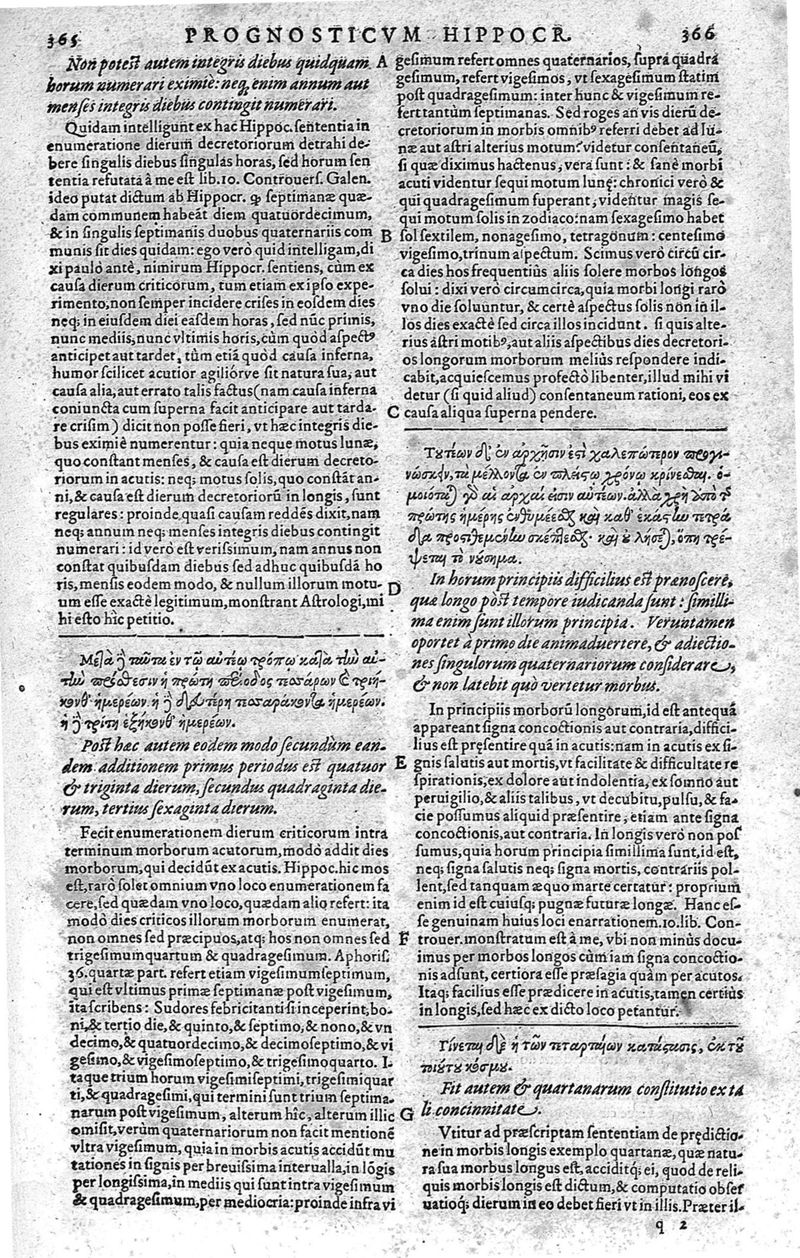 365 PROGNOSTICVM HIPPOCR. 366
Non potest autem integris diebus quidquam
horum numerari eximiè: neq; enim annum aut
menses integris diebus contingit numerari.
Quidam intelligunt ex hac Hippoc. sententia in
enumeratione dierum decretoriorum detrahi de-
bere singulis diebus singulas horas, sed horum sen
tentia refutata à me est lib. 10. Controuers. Galen.
ideo putat dictum ab Hippocr. ꝙ septimanæ quæ-
dam communem habeāt diem quatuordecimum,
& in singulis septimanis duobus quaternariis com
munis sit dies quidam: ego verò quid intelligam, di
xi paulò antè, nimirum Hippocr. sentiens, cùm ex
causa dierum criticorum, tum etiam ex ipso expe-
rimento, non semper incidere crises in eosdem dies
neq; in eiusdem diei easdem horas, sed nūc primis,
nunc mediis, nunc vltimis horis, cùm quòd aspectꝰ
anticipet aut tardet, tùm etiā quòd causa inferna,
humor scilicet acutior agiliórve sit natura sua, aut
causa alia, aut errato talis factus (nam causa inferna
coniuncta cum superna facit anticipare aut tarda-
re crisim) dicit non posse fieri, vt hæc integris die-
bus eximiè numerentur: quia neque motus lunæ,
quo constant menses, & causa est dierum decreto-
riorum in acutis: neq; motus solis, quo constāt an-
ni, & causa est dierum decretoriorū in longis, sunt
regulares: proinde quasi causam reddēs dixit, nam
neq; annum neq; menses integris diebus contingit
numerari: id verò est verissimum, nam annus non
constat quibusdam diebus sed adhuc quibusdā ho
ris, mensis eodem modo, & nullum illorum motu-
um esse exactè legitimum, monstrant Astrologi, mi
hi esto hîc petitio.
Μετὰ ἢ ταῦτα ἐν τῷ αὐτέῳ τρόπῳ κατὰ τὴν αὐ-
τὴν πρόθεσιν ἡ πρώτη περίοδος τεσσάρων & τριή-
κονθ' ἡμερέων. ἡ ἢ δευτέρη τεσσαράκοντα ἡμερέων.
ἡ ἢ τρίτη ἑξήκονθ' ἡμερέων.
Post hæc autem eodem modo secundùm ean-
dem additionem primus periodus est quatuor
& triginta dierum, secundus quadraginta die-
rum, tertius sexaginta dierum.
Fecit enumerationem dierum criticorum intra
terminum morborum acutorum, modò addit dies
morborum, qui decidūt ex acutis. Hippoc. hic mos
est, rarò solet omnium vno loco enumerationem fa
cere, sed quædam vno loco, quædam alio refert: ita
modò dies criticos illorum morborum enumerat,
non omnes sed præcipuos, atq; hos non omnes sed
trigesimumquartum & quadragesimum. Aphoris.
36. quartæ part. refert etiam vigesimumseptimum,
qui est vltimus primæ septimanæ post vigesimum,
ita scribens: Sudores febricitanti si inceperint, bo-
ni, & tertio die, & quinto, & septimo, & nono, & vn
decimo, & quatuordecimo, & decimoseptimo, & vi
gesimo, & vigesimoseptimo, & trigesimoquarto. I-
taque trium horum vigesimiseptimi, trigesimiquar
ti, & quadragesimi, qui termini sunt trium septima-
narum post vigesimum, alterum hîc, alterum illic
omisit, verùm quaternariorum non facit mentionē
vltra vigesimum, quia in morbis acutis accidūt mu
tationes in signis per breuissima interualla, in lōgis
per longissima, in mediis qui sunt intra vigesimum
& quadragesimum, per mediocria: proinde infra vi
A gesimum refert omnes quaternarios, supra quadrá
gesimum, refert vigesimos, vt sexagesimum statim
post quadragesimum: inter hunc & vigesimum re-
fert tantùm septimanas. Sed roges an vis dierū de-
cretoriorum in morbis omnibꝰ referri debet ad lu-
næ aut astri alterius motum? videtur consentaneū,
si quæ diximus hactenus, vera sunt: & sanè morbi
acuti videntur sequi motum lunę: chronici verò &
qui quadragesimum superant, videntur magis se-
qui motum solis in zodiaco: nam sexagesimo habet
B sol sextilem, nonagesimo, tetragonum: centesimo
vigesimo, trinum aspectum. Scimus verò circū cir-
ca dies hos frequentiùs aliis solere morbos lōngos
solui: dixi verò circumcirca, quia morbi longi rarò
vno die soluuntur, & certè aspectus solis non in il-
los dies exactè sed circa illos incidunt. si quis alte-
rius astri motibꝰ, aut aliis aspectibus dies decretori-
os longorum morborum meliùs respondere indi-
cabit, acquiescemus profectò libenter, illud mihi vi
detur (si quid aliud) consentaneum rationi, eos ex
C causa aliqua superna pendere.
Τουτέων δὲ ἐν ἀρχῇσιν ἐστὶ χαλεπώτερον προγι-
νώσκειν, τὰ μέλλοντα ἐν πλείστῳ χρόνῳ κρίνεσθαι. ὁ-
μοιόταται γὸ αἱ ἀρχαί εἰσιν αὐτέων. ἀλλὰ χρὴ ἀπὸ τῆς
πρώτης ἡμέρης ἐνθυμέεσθαι καὶ καθ' ἑκάστην τετρά
δα προστιθεμένην σκέπτεσθαι· καὶ οὐ λήσει, ὅπη τρέ-
ψεται τὸ νούσημα.
D In horum principiis difficilius est prænoscere,
quæ longo pòst tempore iudicanda sunt: simili-
ma enim sunt illorum principia. Veruntamen
oportet à primo die animaduertere, & adiectio-
nes singulorum quaternariorum considerare,
& non latebit quò vertetur morbus.
In principiis morborū longorum, id est antequā
appareant signa concoctionis aut contraria, diffici-
lius est pręsentire quā in acutis: nam in acutis ex si-
E gnis salutis aut mortis, vt facilitate & difficultate re
spirationis, ex dolore aut indolentia, ex somno aut
peruigilio, & aliis talibus, vt decubitu, pulsu, & fa-
cie possumus aliquid præsentire, etiam ante signa
concoctionis, aut contraria. In longis verò non pos
sumus, quia horum principia simillima sunt, id est,
neq; signa salutis neq; signa mortis, contrariis pol-
lent, sed tanquam æquo marte certatur: proprium
enim id est cuiusq; pugnæ futuræ longæ. Hanc es-
se genuinam huius loci enarrationem. 10. lib. Con-
F trouer. monstratum est à me, vbi non minùs docu-
imus per morbos longos cùm iam signa concoctio-
nis adsunt, certiora esse præsagia quàm per acutos.
Itaq; facilius esse prædicere in acutis, tamen certius
in longis, sed hæc ex dicto loco petantur.
Γίνεται δὲ ἡ τῶν τεταρταίων κατάστασις, ἐκ τοῦ
τοιούτου κόσμου.
Fit autem & quartanarum constitutio ex ta
G li concinnitate.
Vtitur ad præscriptam sententiam de pędictio-
ne in morbis longis exemplo quartanæ, quæ natu-
ra sua morbus longus est, acciditq; ei, quod de reli-
quis morbis longis est dictum, & computatio obser
uatioq; dierum in eo debet fieri vt in illis. Præter il-
q 2